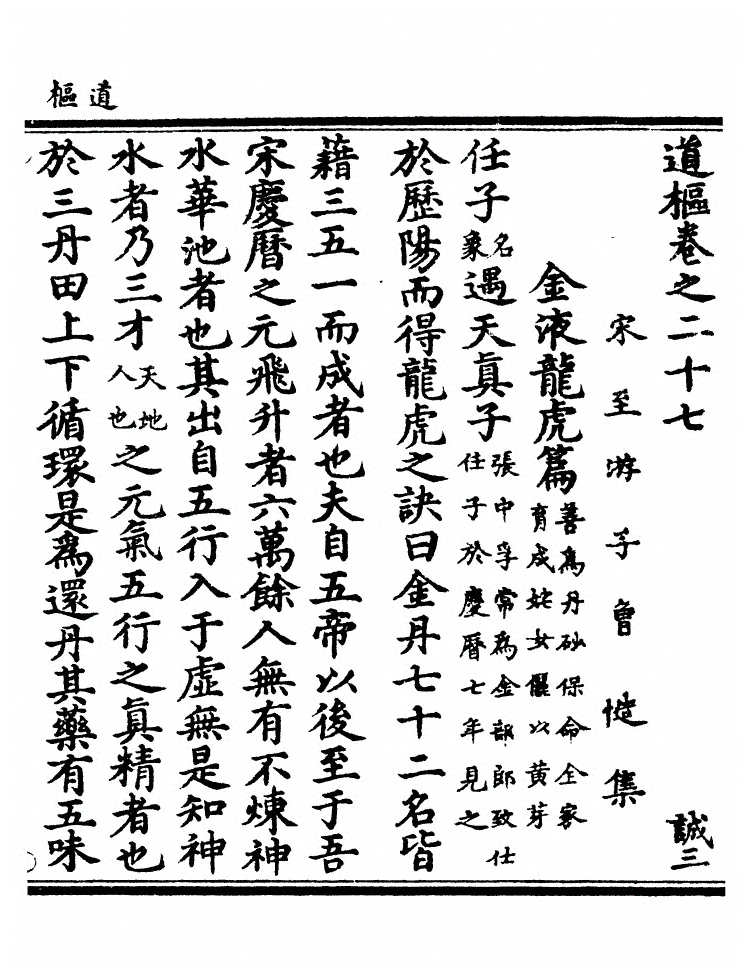 道樞
道樞卷之二十七 誠三
宋至游子曾慥集
金液龍虎篇善爲丹砂保命全家育成姹女儷以黄芽
任子名象遇天眞子張中孚常爲金部郎致仕任子於慶曆七年見之
於歷陽而得龍虎之訣曰金丹七十二名皆
藉三五一而成者也夫自五帝以後至于吾
宋慶曆之元飛升者六萬餘人無有不煉神
水華池者也其出自五行入于虛無是知神
水者乃三才天地人也之元氣五行之眞精者也
於三丹田上下循環是爲還丹其藥有五味